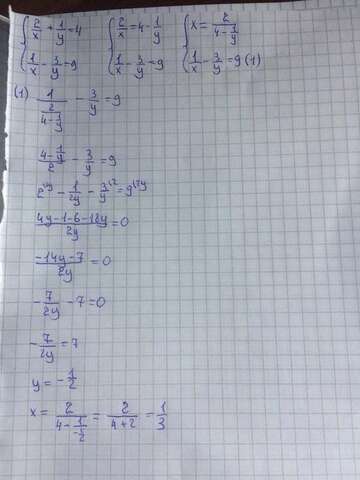 {2/x + 1/y = 4 {2/x = 4 - 1/y {x = 2/(4 - 1/y)
{1/x - 3/y = 9 {1/x - 3/y = 9 {1/x - 3/y = 9 (1)
(1) 1/(2/(4 - 1/y)) - 3/y = 9
(4 - 1/y)/2 - 3/y = 9
2^2y - 1/2y - 3/y^2 = 9^2y
(4y - 1 - 6 - 18y)/2y = 0
(-14y - 7)/2y = 0
-7/2y - 7 = 0
-7/2y = 7
y = -1/2
x = 2/(4 - 1/(-1/2)) = 2/(4 + 2) = 1/3